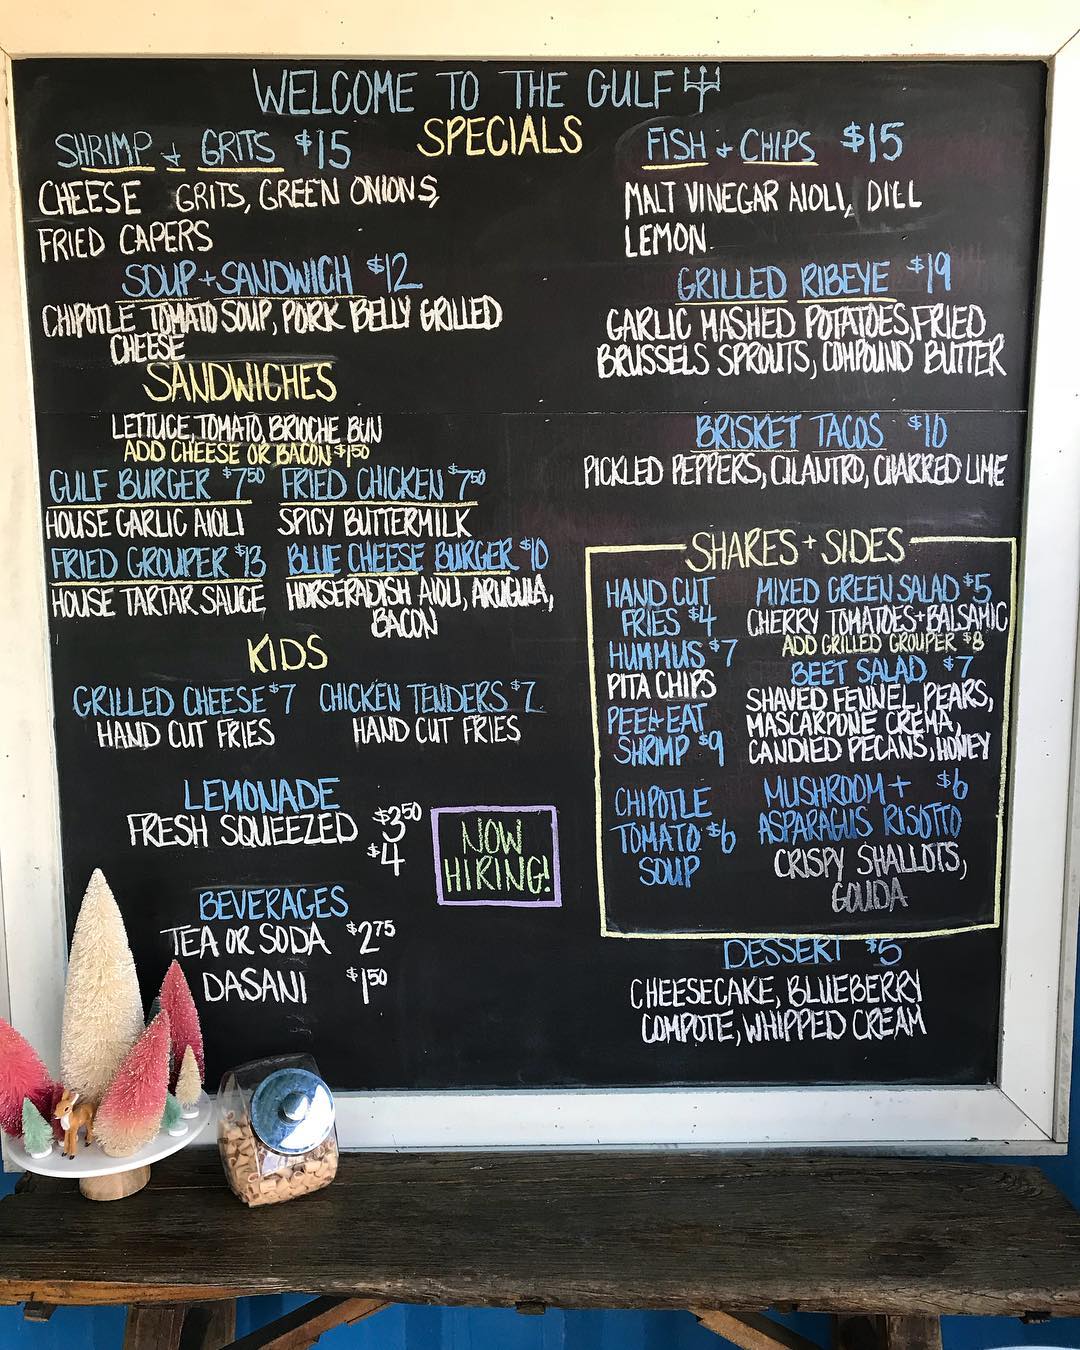 WELCOME TO THE GULF
SPECIALS
SHRIMP + GRITS $15
CHEESE GRITS, GREEN ONIONS,
FRIED CAPERS
SOUP + SANDWICH $12
CHIPOTLE TOMATO SOUP, PORK BELLY GRILLED
CHEESE
FISH + CHIPS $15
MALT VINEGAR AIOLI, DILL
LEMON
GRILLED RIBEYE $19
GARLIC MASHED POTATOES, FRIED
BRUSSELS SPROUTS, COMPOUND BUTTER
BRISKET TACOS $10
PICKLED PEPPERS, CILANTRO, CHARRED LIME
SANDWICHES
LETTUCE, TOMATO, BRIOCHE BUN
ADD CHEESE OR BACON $1.50
GULF BURGER $7.50
HOUSE GARLIC AIOLI
FRIED CHICKEN $7.50
SPICY BUTTERMILK
FRIED GROUPER $13
HOUSE TARTAR SAUCE
BLUE CHEESE BURGER $10
HORSERADISH AIOLI, ARUGULA,
BACON
KIDS
GRILLED CHEESE $7
HAND CUT FRIES
CHICKEN TENDERS $7
HAND CUT FRIES
LEMONADE
FRESH SQUEEZED $3.50
$4
NOW
HIRING!
BEVERAGES
TEA OR SODA $2.75
DASANI $1.50
SHARES + SIDES
HAND CUT
FRIES $4
HUMMUS $7
PITA CHIPS
PEEL + EAT
SHRIMP $9
CHIPOTLE
TOMATO $6
SOUP
MIXED GREEN SALAD $5
CHERRY TOMATOES + BALSAMIC
ADD GRILLED GROUPER $8
BEET SALAD $7
SHAVED FENNEL, PEARS,
MASCARPONE CREMA,
CANDIED PECANS, HONEY
MUSHROOM + $6
ASPARAGUS RISOTTO
CRISPY SHALLOTS,
GOUDA
DESSERT $5
CHEESECAKE, BLUEBERRY
COMPOTE, WHIPPED CREAM